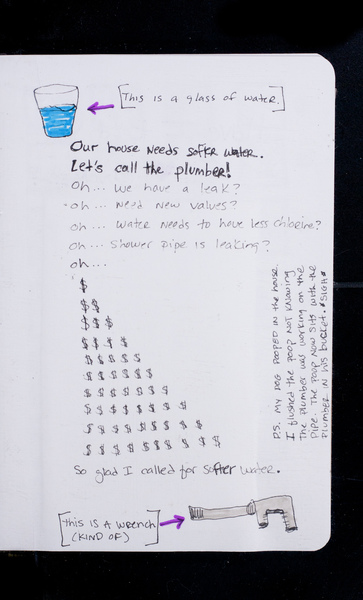 [This is a glass of water.]
Our house needs softer water.
Let's call the plumber!
oh... we have a leak?
oh... need new valves?
oh... water needs to have less chlorine?
oh... shower pipe is leaking?
oh...
$
$ $
$ $ $
$ $ $ $
$ $ $ $ $
$ $ $ $ $ $
$ $ $ $ $ $ $
$ $ $ $ $ $ $ $
$ $ $ $ $ $ $ $ $
$ $ $ $ $ $ $ $ $ $
So glad I called for softer water.
P.S. My dog pooped in the house.
I flushed the poop not knowing
the plumber was working on the
pipe. The poop now sits with the
plumber in his bucket. *sigh*
[this is a wrench
(kind of)]